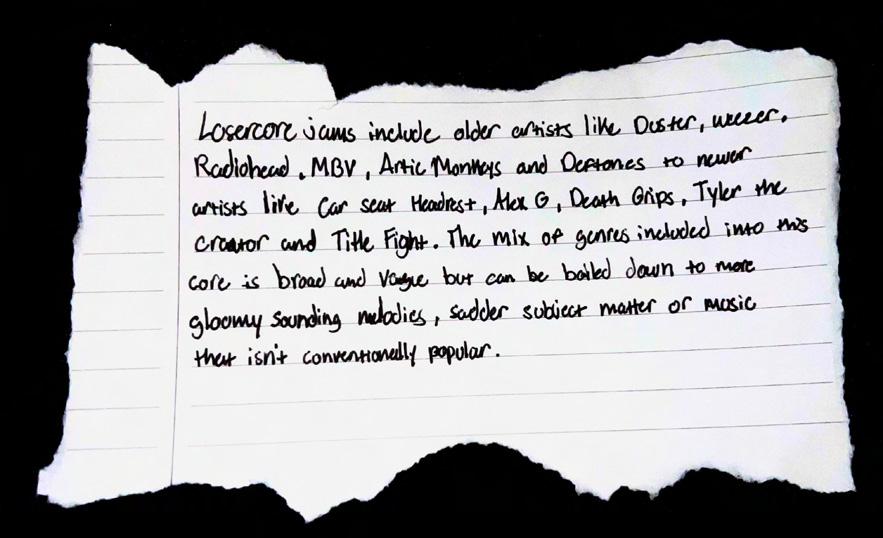 Losercore jams include older artists like Duster, weezer,
Radiohead, MBV, Artic Monkeys and Deftones to newer
artists like Car seat Headrest, Alex G, Death Grips, Tyler the
creator and Title Fight. The mix of genres included into this
core is broad and vague but can be boiled down to more
gloomy sounding melodies, sadder subject matter or music
that isn't conventionally popular.